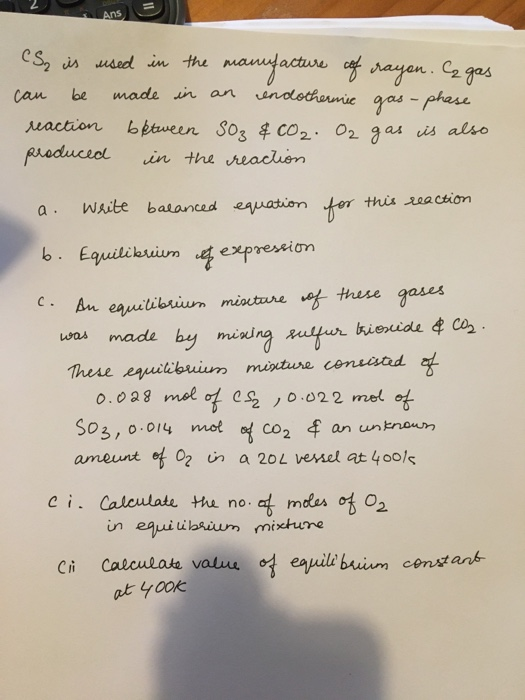 Ans
=
CS₂ is used in the manufacture of rayon. C₂ gas
can be made in an endothermic gas-phase
reaction between SO₃ & CO₂. O₂ gas is also
produced in the reaction
a. Write balanced equation for this reaction
b. Equilibrium of expression
c. An equilibrium mixture of these gases
was made by mixing sulfur trioxide & CO₂.
These equilibrium mixture consisted of
0.028 mol of CS₂, 0.022 mol of
SO₃, 0.014 mol of CO₂ & an unknown
amount of O₂ in a 20L vessel at 400K
c i. Calculate the no. of moles of O₂
in equilibrium mixture
Cii Calculate value of equilibrium constant
at 400K